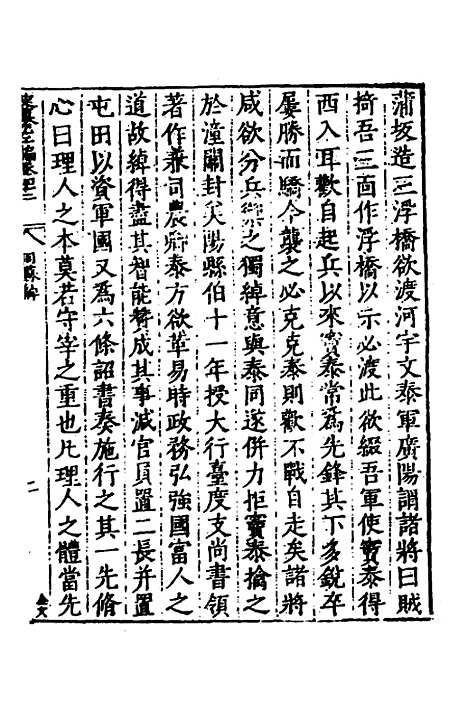 蒲坂造三浮橋欲渡河宇文泰軍廣陽謂諸將曰賊
掎吾三面作浮橋以示必渡此欲綴吾軍使竇泰得
西入耳歡自起兵以來竇泰常為先鋒其下多銳卒
屢勝而驕今襲之必克克泰則歡不戰自走矣諸將
咸欲分兵禦之獨綽意與泰同遂併力拒竇泰擒之
於潼關封美陽縣伯十一年授大行臺度支尚書領
著作兼司農卿泰方欲革易時政務弘強國富人之
道故綽得盡其智能贊成其事減官員置二長并置
屯田以資軍國又為六條詔書奏施行之其一先脩
心曰理人之本莫若守宰之重也凡理人之體當先
二